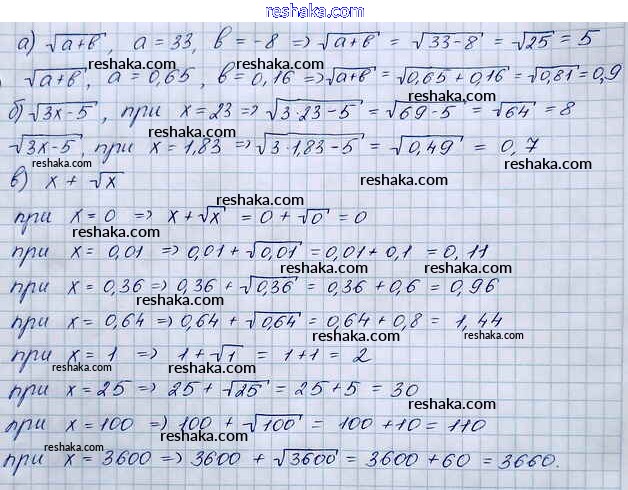 reshaka.com
а) √(a+b), a = 33, b = -8 ⇒ √(a+b) = √(33-8) = √25 = 5
reshaka.com reshaka.com
√(a+b), a = 0,65, b = 0,16 ⇒ √(a+b) = √(0,65+0,16) = √0,81 = 0,9
reshaka.com reshaka.com
б) √(3x-5), при x = 23 ⇒ √(3·23-5) = √(69-5) = √64 = 8
reshaka.com reshaka.com
√(3x-5), при x = 1,83 ⇒ √(3·1,83-5) = √0,49 = 0,7
reshaka.com reshaka.com
в) x + √x
reshaka.com reshaka.com
при x = 0 ⇒ x + √x = 0 + √0 = 0
reshaka.com
при x = 0,01 ⇒ 0,01 + √0,01 = 0,01 + 0,1 = 0,11
reshaka.com reshaka.com
при x = 0,36 ⇒ 0,36 + √0,36 = 0,36 + 0,6 = 0,96
reshaka.com
при x = 0,64 ⇒ 0,64 + √0,64 = 0,64 + 0,8 = 1,44
reshaka.com reshaka.com
при x = 1 ⇒ 1 + √1 = 1 + 1 = 2
reshaka.com reshaka.com
при x = 25 ⇒ 25 + √25 = 25 + 5 = 30
reshaka.com reshaka.com
при x = 100 ⇒ 100 + √100 = 100 + 10 = 110
reshaka.com reshaka.com
при x = 3600 ⇒ 3600 + √3600 = 3600 + 60 = 3660.
reshaka.com